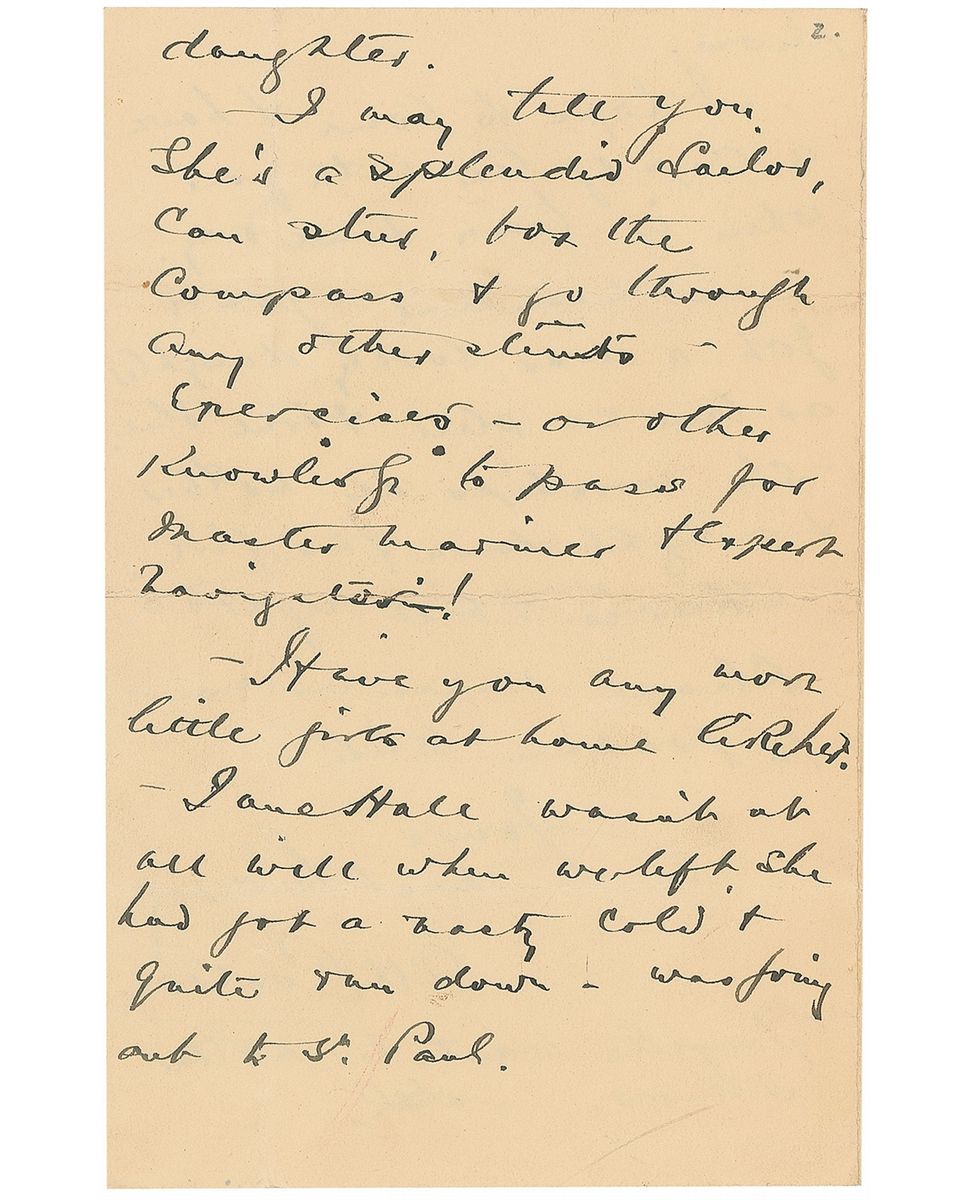 2.
daughter.
— I may tell you
She's a splendid Sailor,
Can steer, box the
Compass & go through
any other stunts –
Exercises – or other
Knowledge to pass for
Master Mariner & Expert
Navigator!
— Have you any more
little girls at home
— Jane Hall wasn't at
all well when we left she
had got a nasty cold &
quite run down – was going
out to St. Paul.